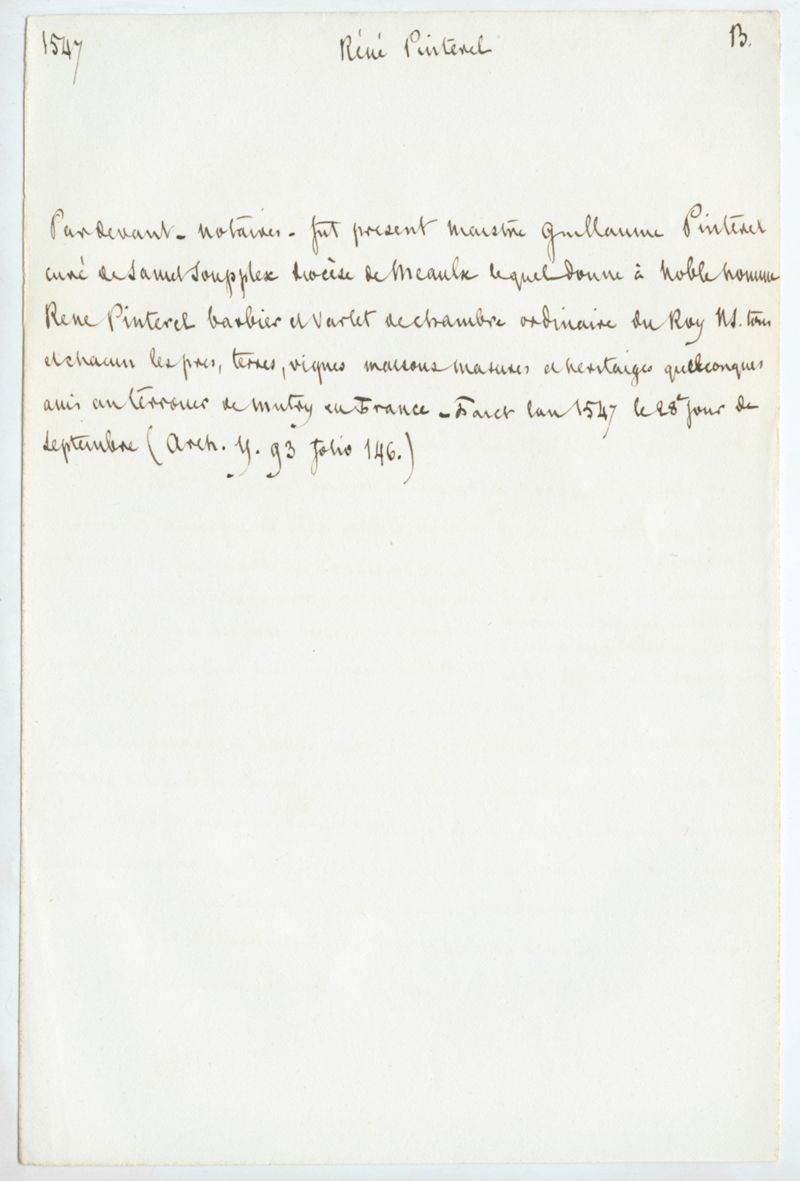 1547 Réné Pinterel B.
Pardevant - notaires - fut present maistre Guillaume Pinterel
curé de Sainct Soupplex diocèse de Meaulx lequel donne à noble homme
Rene Pinterel barbier et varlet de chambre ordinaire du Roy NS. tous
et chacun les pres, terres, vignes maisons masures et heritaiges quelconques
assis au terrouer de Mitry en France - Faict l'an 1547 le 28e jour de
septembre (Arch. Y. 93 folio 146.)